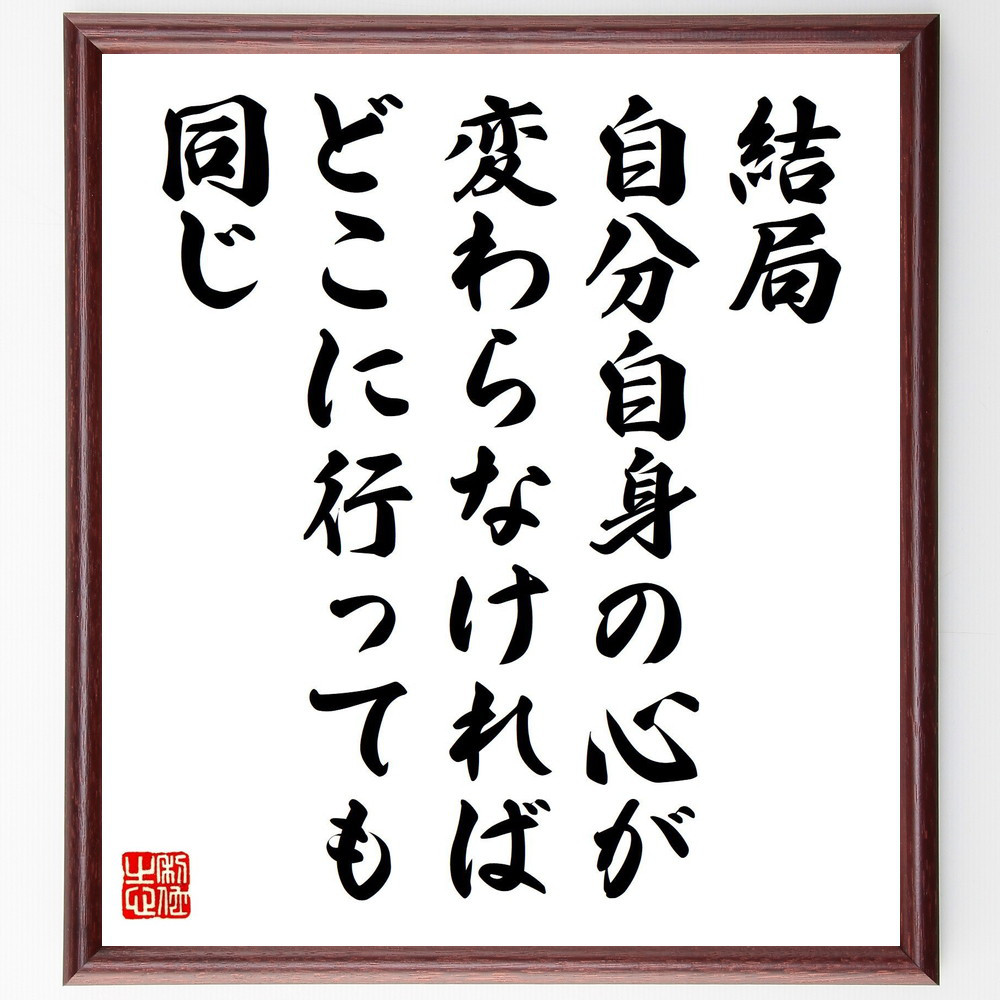 結局
自分自身の心が
変わらなければ
どこに行っても
同じ